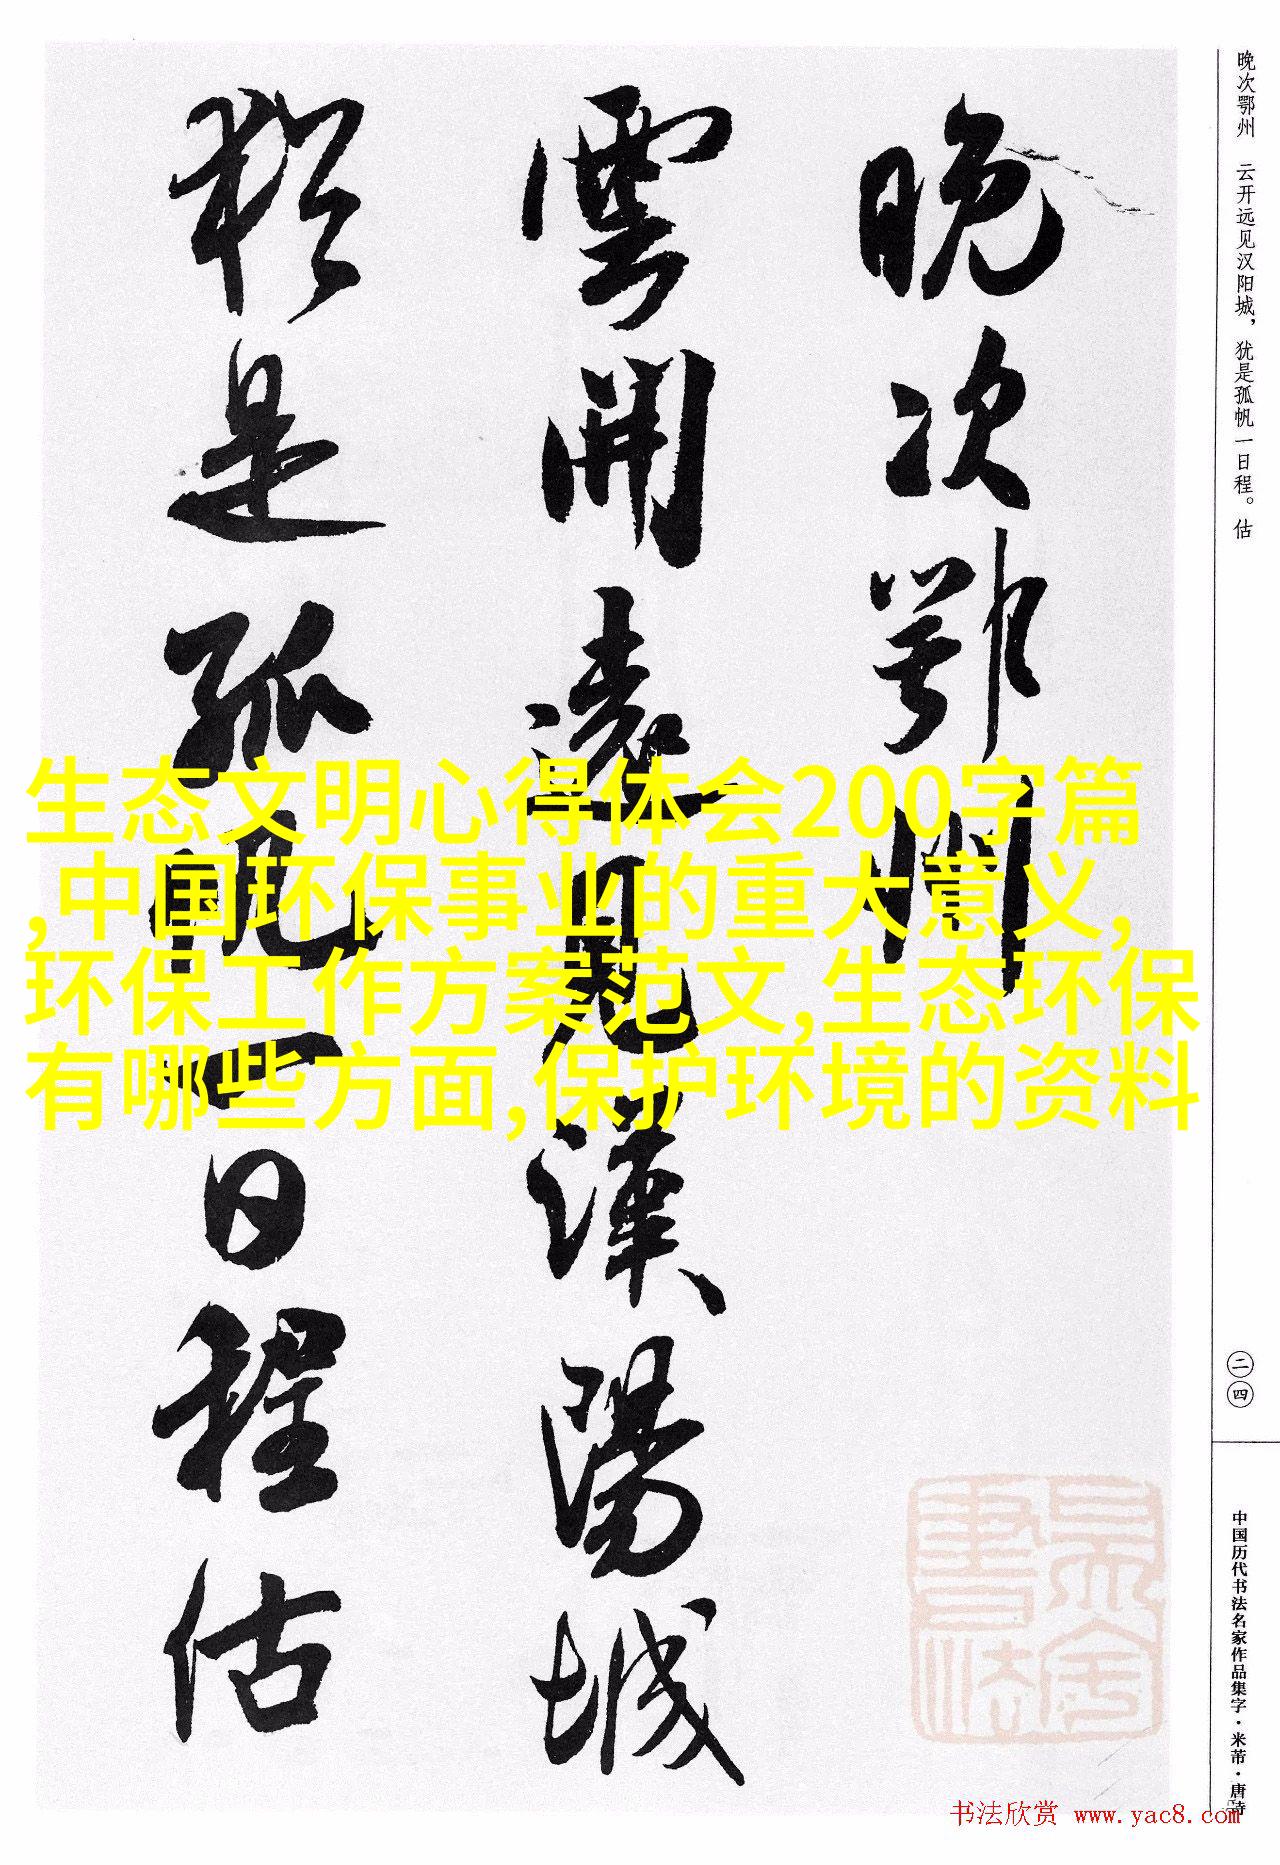 晚次鄂州
雲開遠見漢陽城
猶是孤帆一日程估
晚次鄂州 云开远见汉阳城，犹是孤帆一日程。估
二四
中国历代书法名家作品集字·米芾·唐诗
生态文明心得体会200字篇
,中国环保事业的重大意义,
环保工作方案范文,生态环保
有哪些方面,保护环境的资料
书法欣赏 www.yac8.com